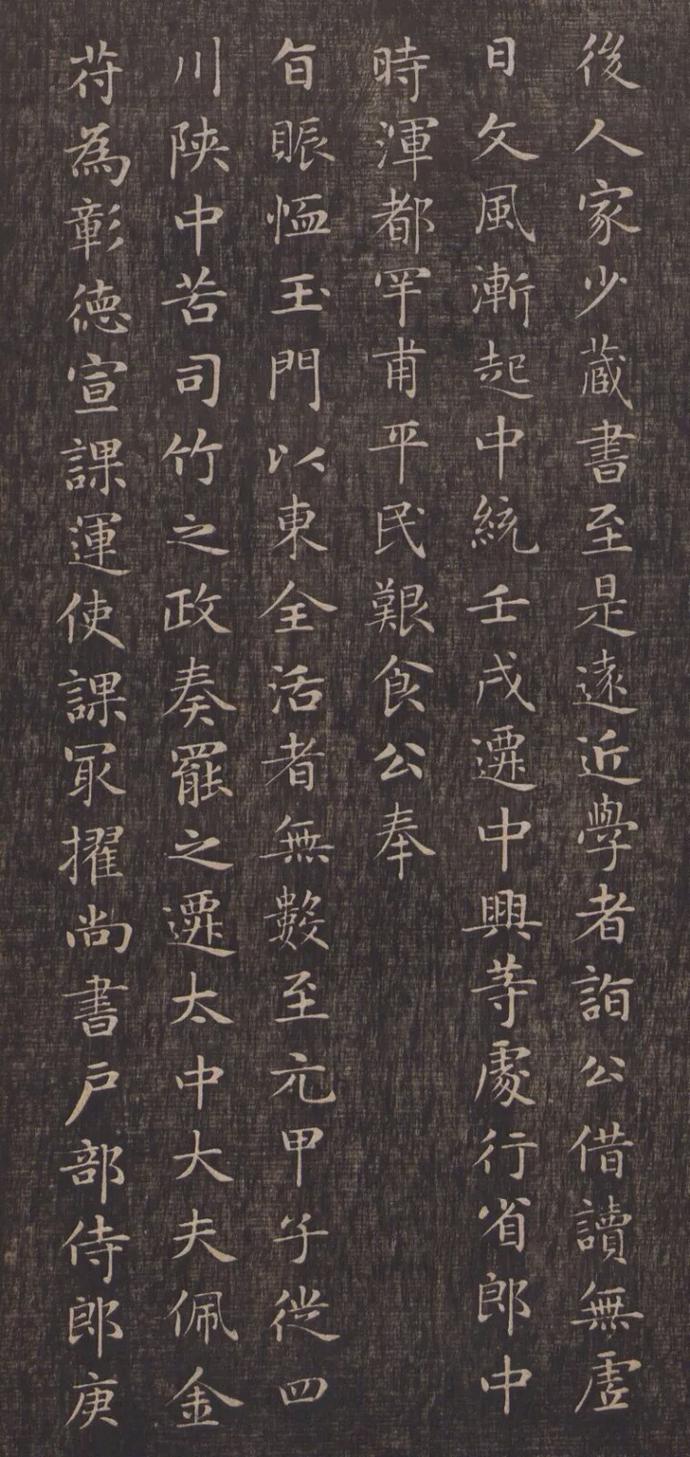 後人家少蔵書至是遠近學者詣公借讀無虚
日文風漸起中統壬戌選中興等處行省郎中
時渾都罕甫平民艱食公奉
旨賑恤玉門以東全活者無數至元甲子從四
川陜中苦司竹之政奏罷之選太中大夫佩金
苻為彰德宣課運使課冣擢尚書戶部侍郎庚